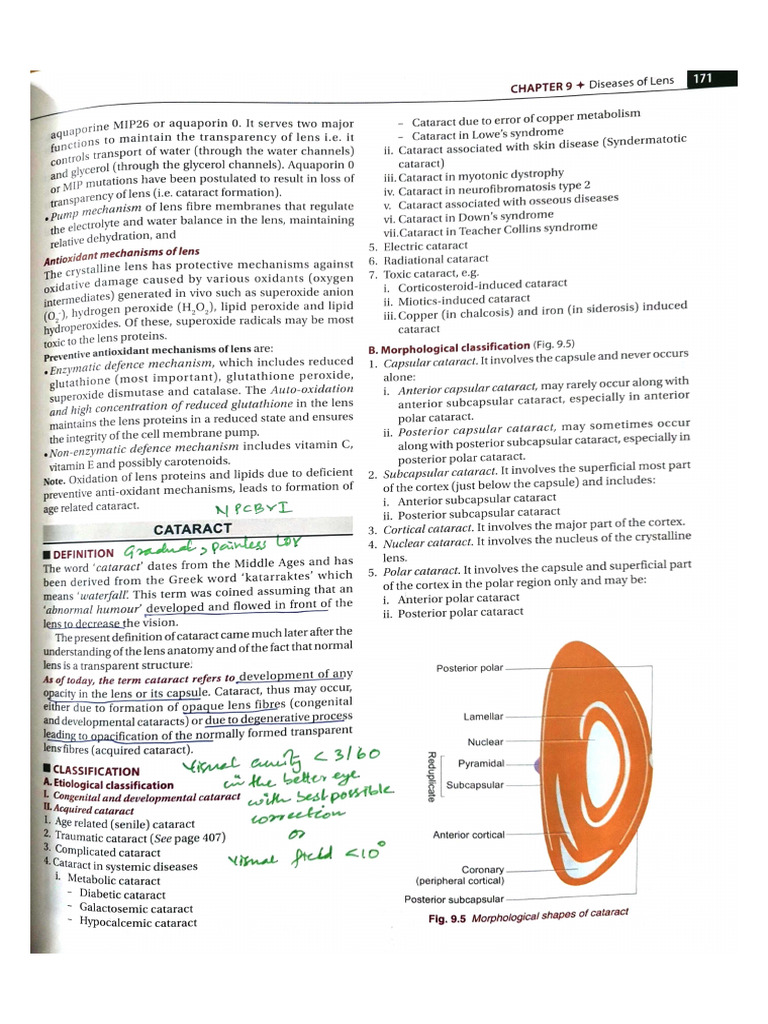 CHAPTER 9 ✦ Diseases of Lens 171
aquaporine MIP26 or aquaporin 0. It serves two major
functions to maintain the transparency of lens i.e. it
controls transport of water (through the water channels)
and glycerol (through the glycerol channels). Aquaporin 0
or MIP mutations have been postulated to result in loss of
transparency of lens (i.e. cataract formation).
• Pump mechanism of lens fibre membranes that regulate
the electrolyte and water balance in the lens, maintaining
relative dehydration, and
Antioxidant mechanisms of lens
The crystalline lens has protective mechanisms against
oxidative damage caused by various oxidants (oxygen
intermediates) generated in vivo such as superoxide anion
(O₂⁻), hydrogen peroxide (H₂O₂), lipid peroxide and lipid
hydroperoxides. Of these, superoxide radicals may be most
toxic to the lens proteins.
Preventive antioxidant mechanisms of lens are:
• Enzymatic defence mechanism, which includes reduced
glutathione (most important), glutathione peroxide,
superoxide dismutase and catalase. The Auto-oxidation
and high concentration of reduced glutathione in the lens
maintains the lens proteins in a reduced state and ensures
the integrity of the cell membrane pump.
• Non-enzymatic defence mechanism includes vitamin C,
vitamin E and possibly carotenoids.
Note. Oxidation of lens proteins and lipids due to deficient
preventive anti-oxidant mechanisms, leads to formation of
age related cataract.
NPCBVI
CATARACT
■ DEFINITION
Gradual, painless LOV
The word 'cataract' dates from the Middle Ages and has
been derived from the Greek word 'katarraktes' which
means 'waterfall'. This term was coined assuming that an
'abnormal humour' developed and flowed in front of the
lens to decrease the vision.
The present definition of cataract came much later after the
understanding of the lens anatomy and of the fact that normal
lens is a transparent structure.
As of today, the term cataract refers to development of any
opacity in the lens or its capsule. Cataract, thus may occur,
either due to formation of opaque lens fibres (congenital
and developmental cataracts) or due to degenerative process
leading to opacification of the normally formed transparent
lens fibres (acquired cataract).
Visual acuity < 3/60
in the better eye
with best possible
correction
or
Visual field < 10°
■ CLASSIFICATION
A. Etiological classification
I. Congenital and developmental cataract
II. Acquired cataract
1. Age related (senile) cataract
2. Traumatic cataract (See page 407)
3. Complicated cataract
4. Cataract in systemic diseases
i. Metabolic cataract
– Diabetic cataract
– Galactosemic cataract
– Hypocalcemic cataract
– Cataract due to error of copper metabolism
– Cataract in Lowe's syndrome
ii. Cataract associated with skin disease (Syndermatotic
cataract)
iii. Cataract in myotonic dystrophy
iv. Cataract in neurofibromatosis type 2
v. Cataract associated with osseous diseases
vi. Cataract in Down's syndrome
vii. Cataract in Teacher Collins syndrome
5. Electric cataract
6. Radiational cataract
7. Toxic cataract, e.g.
i. Corticosteroid-induced cataract
ii. Miotics-induced cataract
iii. Copper (in chalcosis) and iron (in siderosis) induced
cataract
B. Morphological classification (Fig. 9.5)
1. Capsular cataract. It involves the capsule and never occurs
alone:
i. Anterior capsular cataract, may rarely occur along with
anterior subcapsular cataract, especially in anterior
polar cataract.
ii. Posterior capsular cataract, may sometimes occur
along with posterior subcapsular cataract, especially in
posterior polar cataract.
2. Subcapsular cataract. It involves the superficial most part
of the cortex (just below the capsule) and includes:
i. Anterior subcapsular cataract
ii. Posterior subcapsular cataract
3. Cortical cataract. It involves the major part of the cortex.
4. Nuclear cataract. It involves the nucleus of the crystalline
lens.
5. Polar cataract. It involves the capsule and superficial part
of the cortex in the polar region only and may be:
i. Anterior polar cataract
ii. Posterior polar cataract
Posterior polar
Lamellar
Nuclear
Reduplicate
Pyramidal
Subcapsular
Anterior cortical
Coronary
(peripheral cortical)
Posterior subcapsular
Fig. 9.5 Morphological shapes of cataract